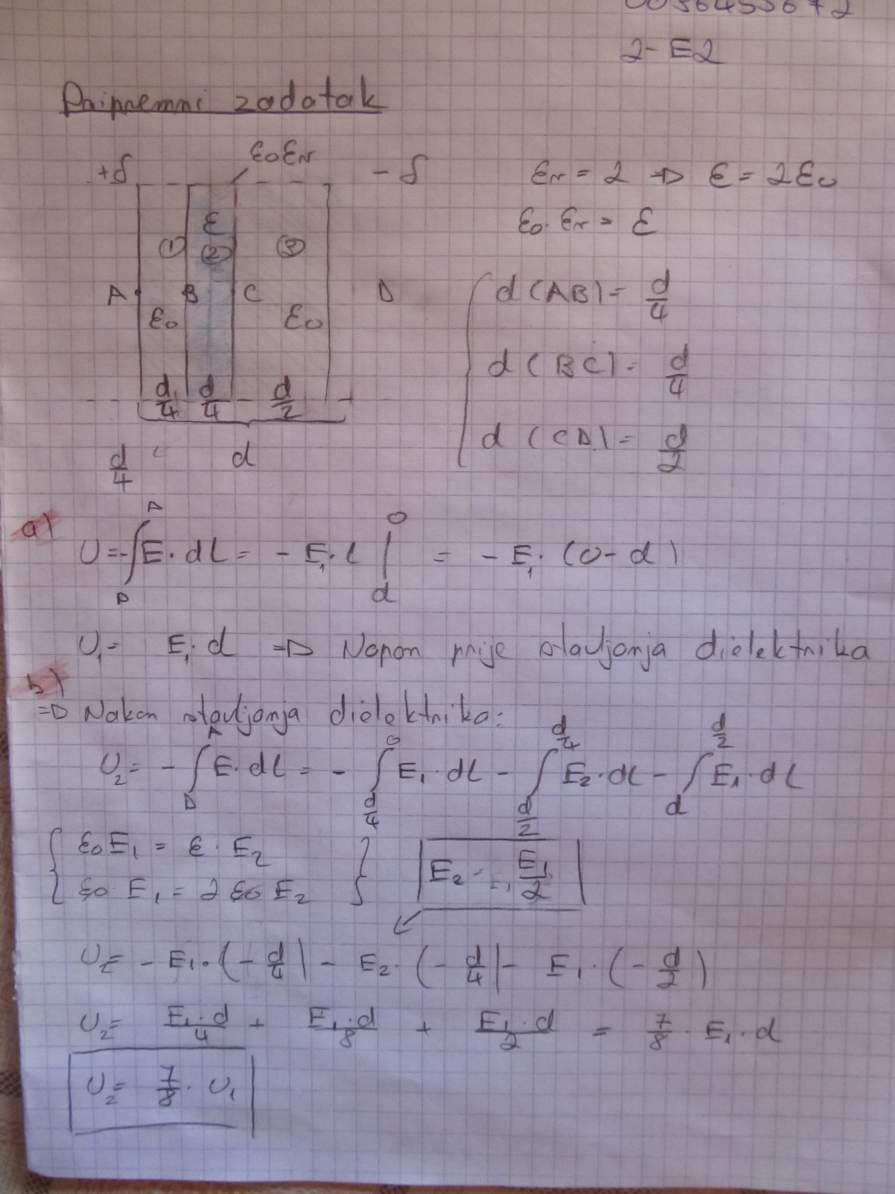 2-E2
Pripremni zadatak
+δ ε₀εᵣ -δ
ε (1) (2) (3)
A B C D
ε₀ ε₀
d/4 d/4 d/2
d/4 d
εᵣ = 2 ⇒ ε = 2ε₀
ε₀·εᵣ = ε
d(AB) = d/4
d(BC) = d/4
d(CD) = d/2
a)
U = -∫_D^A E·dl = -E₁·l |_d^0 = -E₁·(0-d)
U₁ = E₁·d ⇒ Napon prije stavljanja dielektrika
b)
⇒ Nakon stavljanja dielektrika:
U₂ = -∫_D^A E·dl = -∫_{d/4}^0 E₁·dl - ∫_{d/2}^{d/4} E₂·dl - ∫_d^{d/2} E₁·dl
{ ε₀E₁ = ε·E₂
ε₀E₁ = 2ε₀E₂ } E₂ = E₁/2
U₂ = -E₁·(-d/4) - E₂·(-d/4) - E₁·(-d/2)
U₂ = E₁·d/4 + E₁·d/8 + E₁·d/2 = 7/8·E₁·d
U₂ = 7/8·U₁